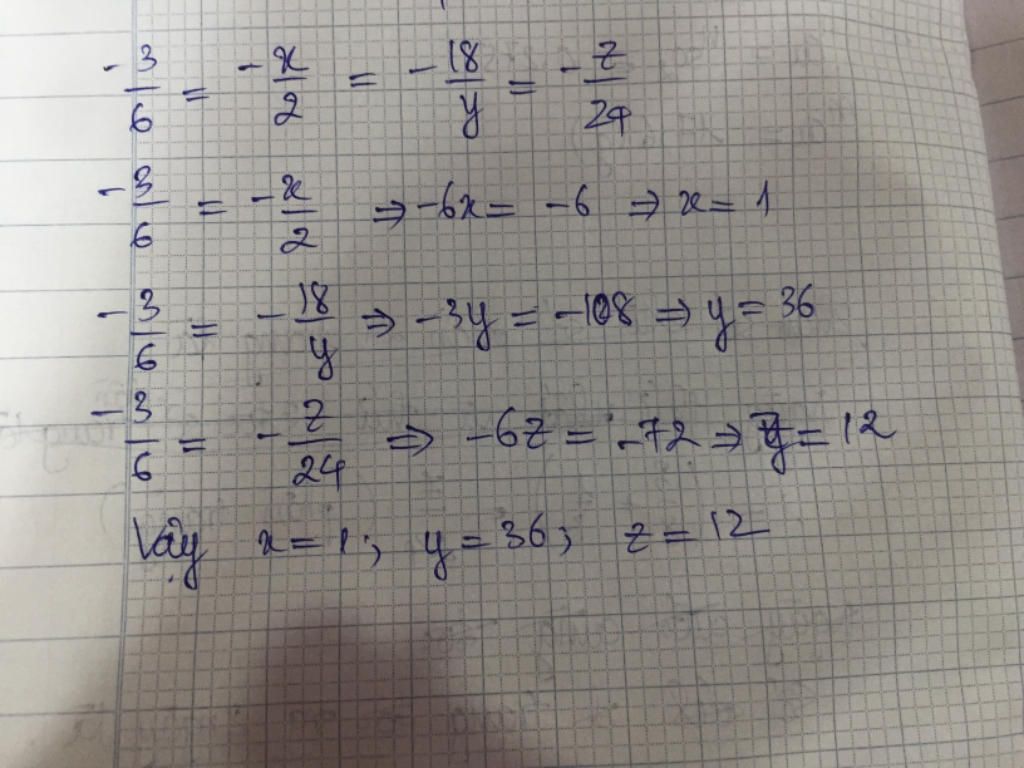 -3/6 = -x/2 = -18/y = -z/24
-3/6 = -x/2 ⇒ -6x = -6 ⇒ x = 1
-3/6 = -18/y ⇒ -3y = -108 ⇒ y = 36
-3/6 = -z/24 ⇒ -6z = -72 ⇒ z = 12
Vậy x = 1; y = 36; z = 12